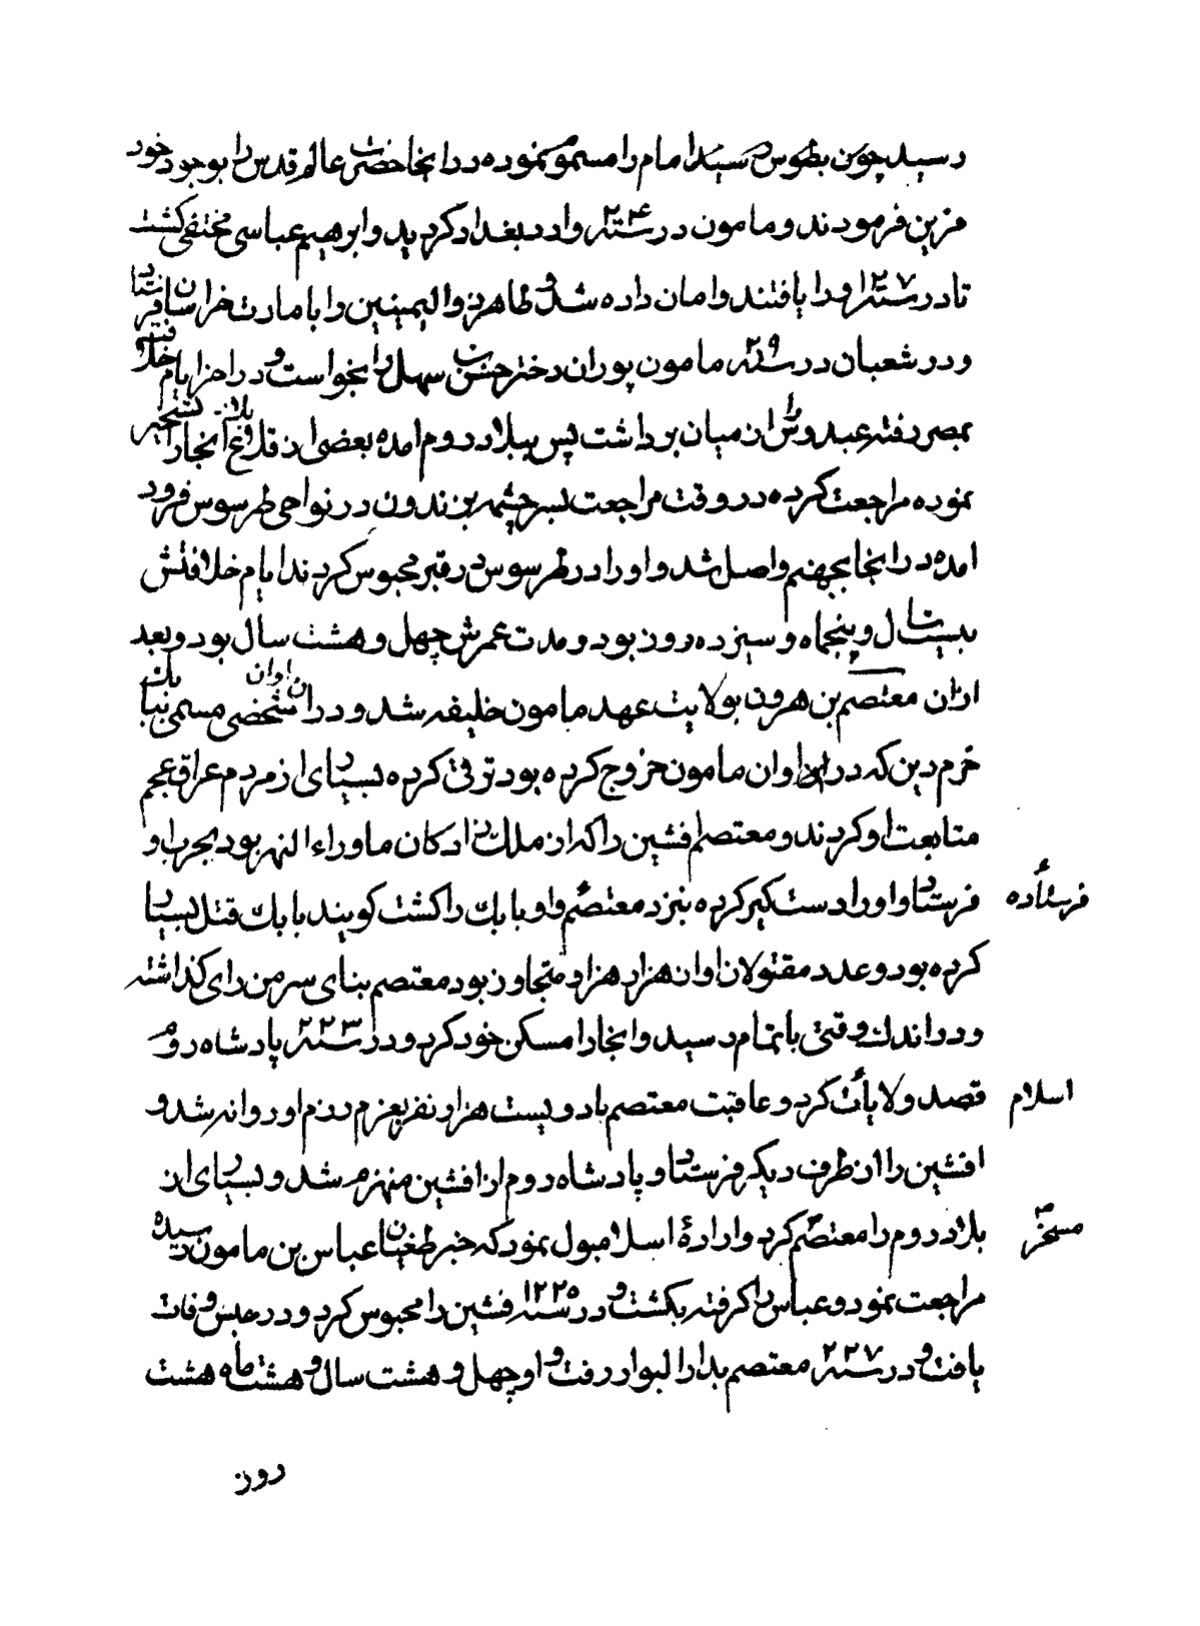 رسید چون بطوس رسید امام را مسموم نموده در انجا حضرت عالم قدس را بوجود خود
مزین فرمودند و مامون در سنه ۲۰۴ وارد بغداد کردید و ابرهیم عباسی مختفی کشت
تا در سنه او را یافتند و امان داده شد و طاهر ذوالیمینین را بامارت خراسان فرستاد
و در شعبان در سنه مامون پوران دختر حسن سهل را بخواست و در اخر ایام خلافتش
بمصر رفته عبدوش را از میان برداشت پس ببلاد روم امده بعضی از قلاع انجا را تسخیر
نموده مراجعت کرده در وقت مراجعت بسر چشمه بزندون در نواحی طرسوس فرود
امده در انجا بجهنم واصل شد و او را در طرسوس در قبر محبوس کردند ایام خلافتش
بیست سال و پنجماه و سیزده روز بود و مدت عمرش چهل و هشت سال بود و بعد
ازان معتصم بن هرون بولایت عهد مامون خلیفه شد و دران اوان شخصی مسمی ببابک
خرم دین که در اوان مامون خروج کرده بود ترقی کرده بسیاری از مردم عراق عجم
متابعت او کردند و معتصم افشین را که از ملک زادکان ماوراء النهر بود بحرب او
فرستاد و او را دستکیر کرده بنزد معتصم و او بابک را کشت کویند بابک قتل بسیار
فرستاده
کرده بود و عدد مقتولان او از هزار هزار متجاوز بود معتصم بنای سر من رای کذاشته
و در اندک وقتی باتمام رسید و انجا را مسکن خود کرد و در سنه ۲۲۳ پادشاه روم
قصد ولایات کرد و عاقبت معتصم با دویست هزار نفر بعزم رزم او روانه شد و
اسلام
افشین را از طرف دیکر فرستاد و پادشاه روم از افشین منهزم شد و بسیاری از
بلاد روم را معتصم کرد و ارادهٔ اسلامبول نمود که خبر طغیان عباس بن مامون رسیده
مسخر
مراجعت نمود و عباس را کرفته بکشت و در سنه ۲۲۵ افشین را محبوس کرد و در حبس وفات
یافت و در سنه ۲۲۷ معتصم بدار البوار رفت و او چهل و هشت سال و هشت ماه هشت
روز